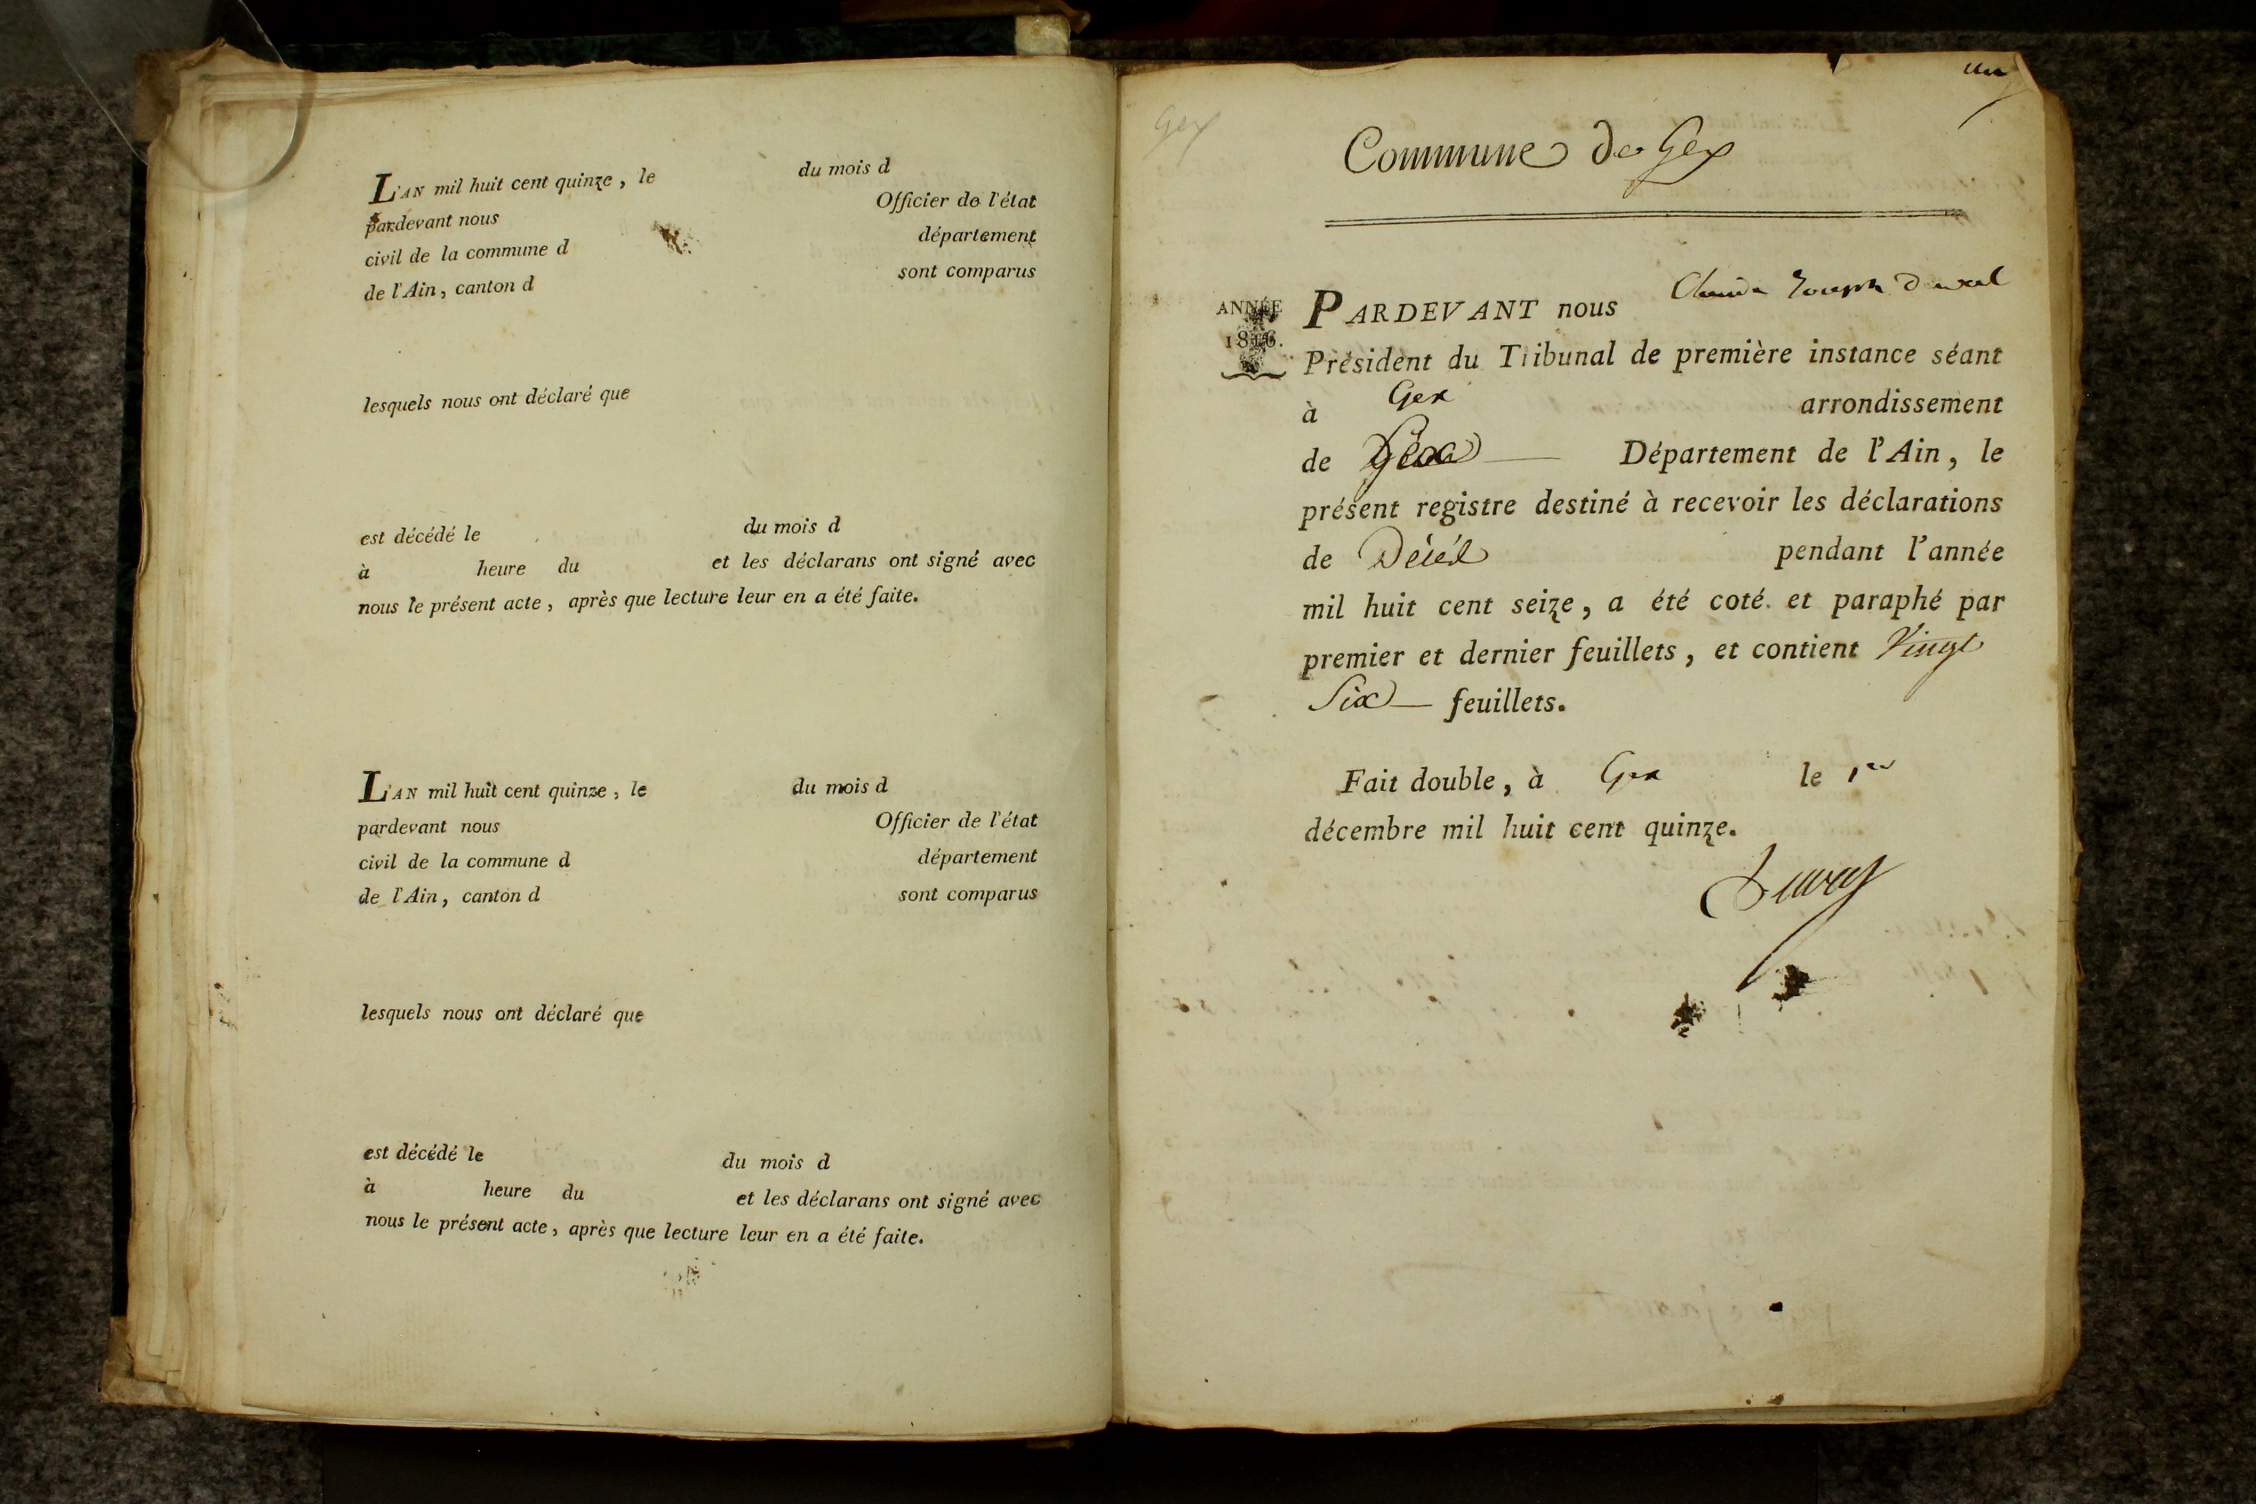 L'AN mil huit cent quinze, le du mois d
pardevant nous Officier de l'état
civil de la commune d département
de l'Ain, canton d sont comparus
lesquels nous ont déclaré que
est décédé le du mois d
à heure du et les déclarans ont signé avec
nous le présent acte, après que lecture leur en a été faite.
L'AN mil huit cent quinze, le du mois d
pardevant nous Officier de l'état
civil de la commune d département
de l'Ain, canton d sont comparus
lesquels nous ont déclaré que
est décédé le du mois d
à heure du et les déclarans ont signé avec
nous le présent acte, après que lecture leur en a été faite.
un
Gex
Commune de Gex
ANNÉE
1816.
PARDEVANT nous Claude Joseph Duval
Président du Tribunal de première instance séant
à Gex arrondissement
de Gex Département de l'Ain, le
présent registre destiné à recevoir les déclarations
de Décés pendant l'année
mil huit cent seize, a été coté et paraphé par
premier et dernier feuillets, et contient Vingt
Six feuillets.
Fait double, à Gex le 1er
décembre mil huit cent quinze.
Duval